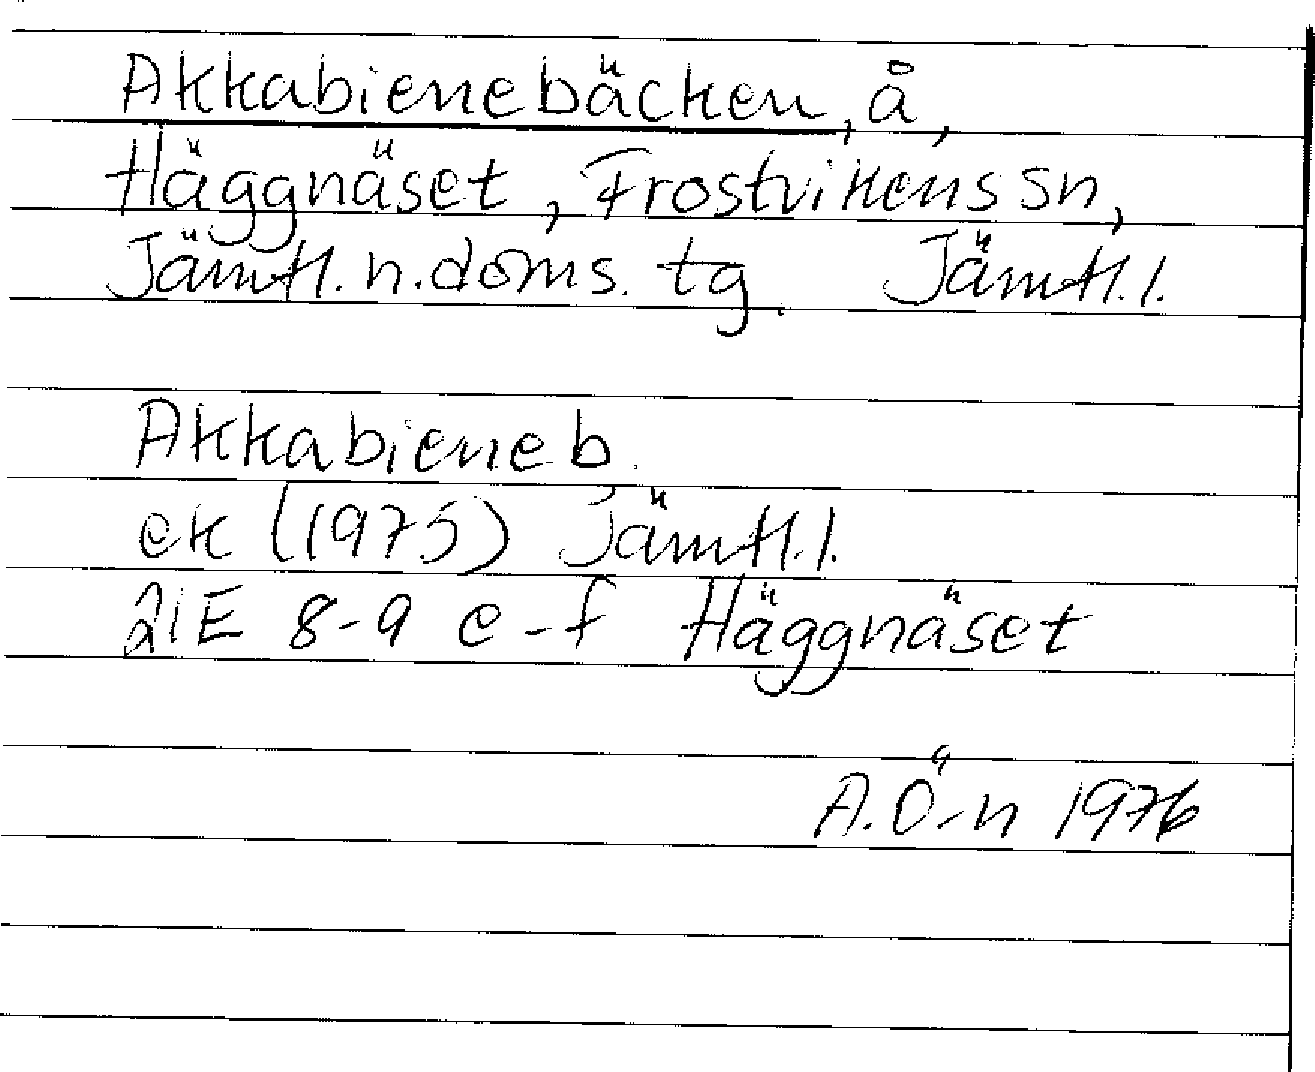 Akkabienebäcken, å,
Häggnäset, Frostvikens sn,
Jämtl. n. doms. tg. Jämtl. l.
Akkabieneb.
ek (1975) Jämtl. l.
21E 8-9 e-f Häggnäset
A. Ö-n 1976